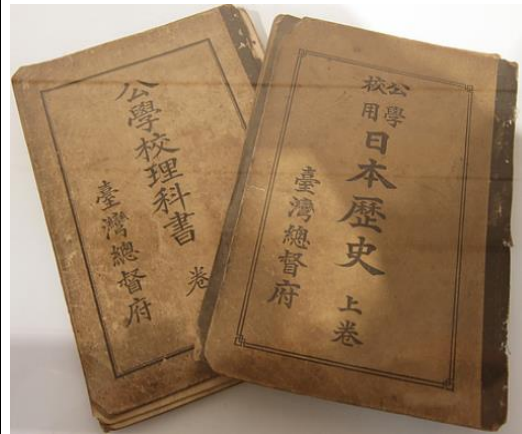 公學校理科書 卷
臺灣總督府
公學
校用
日本歷史 上卷
臺灣總督府